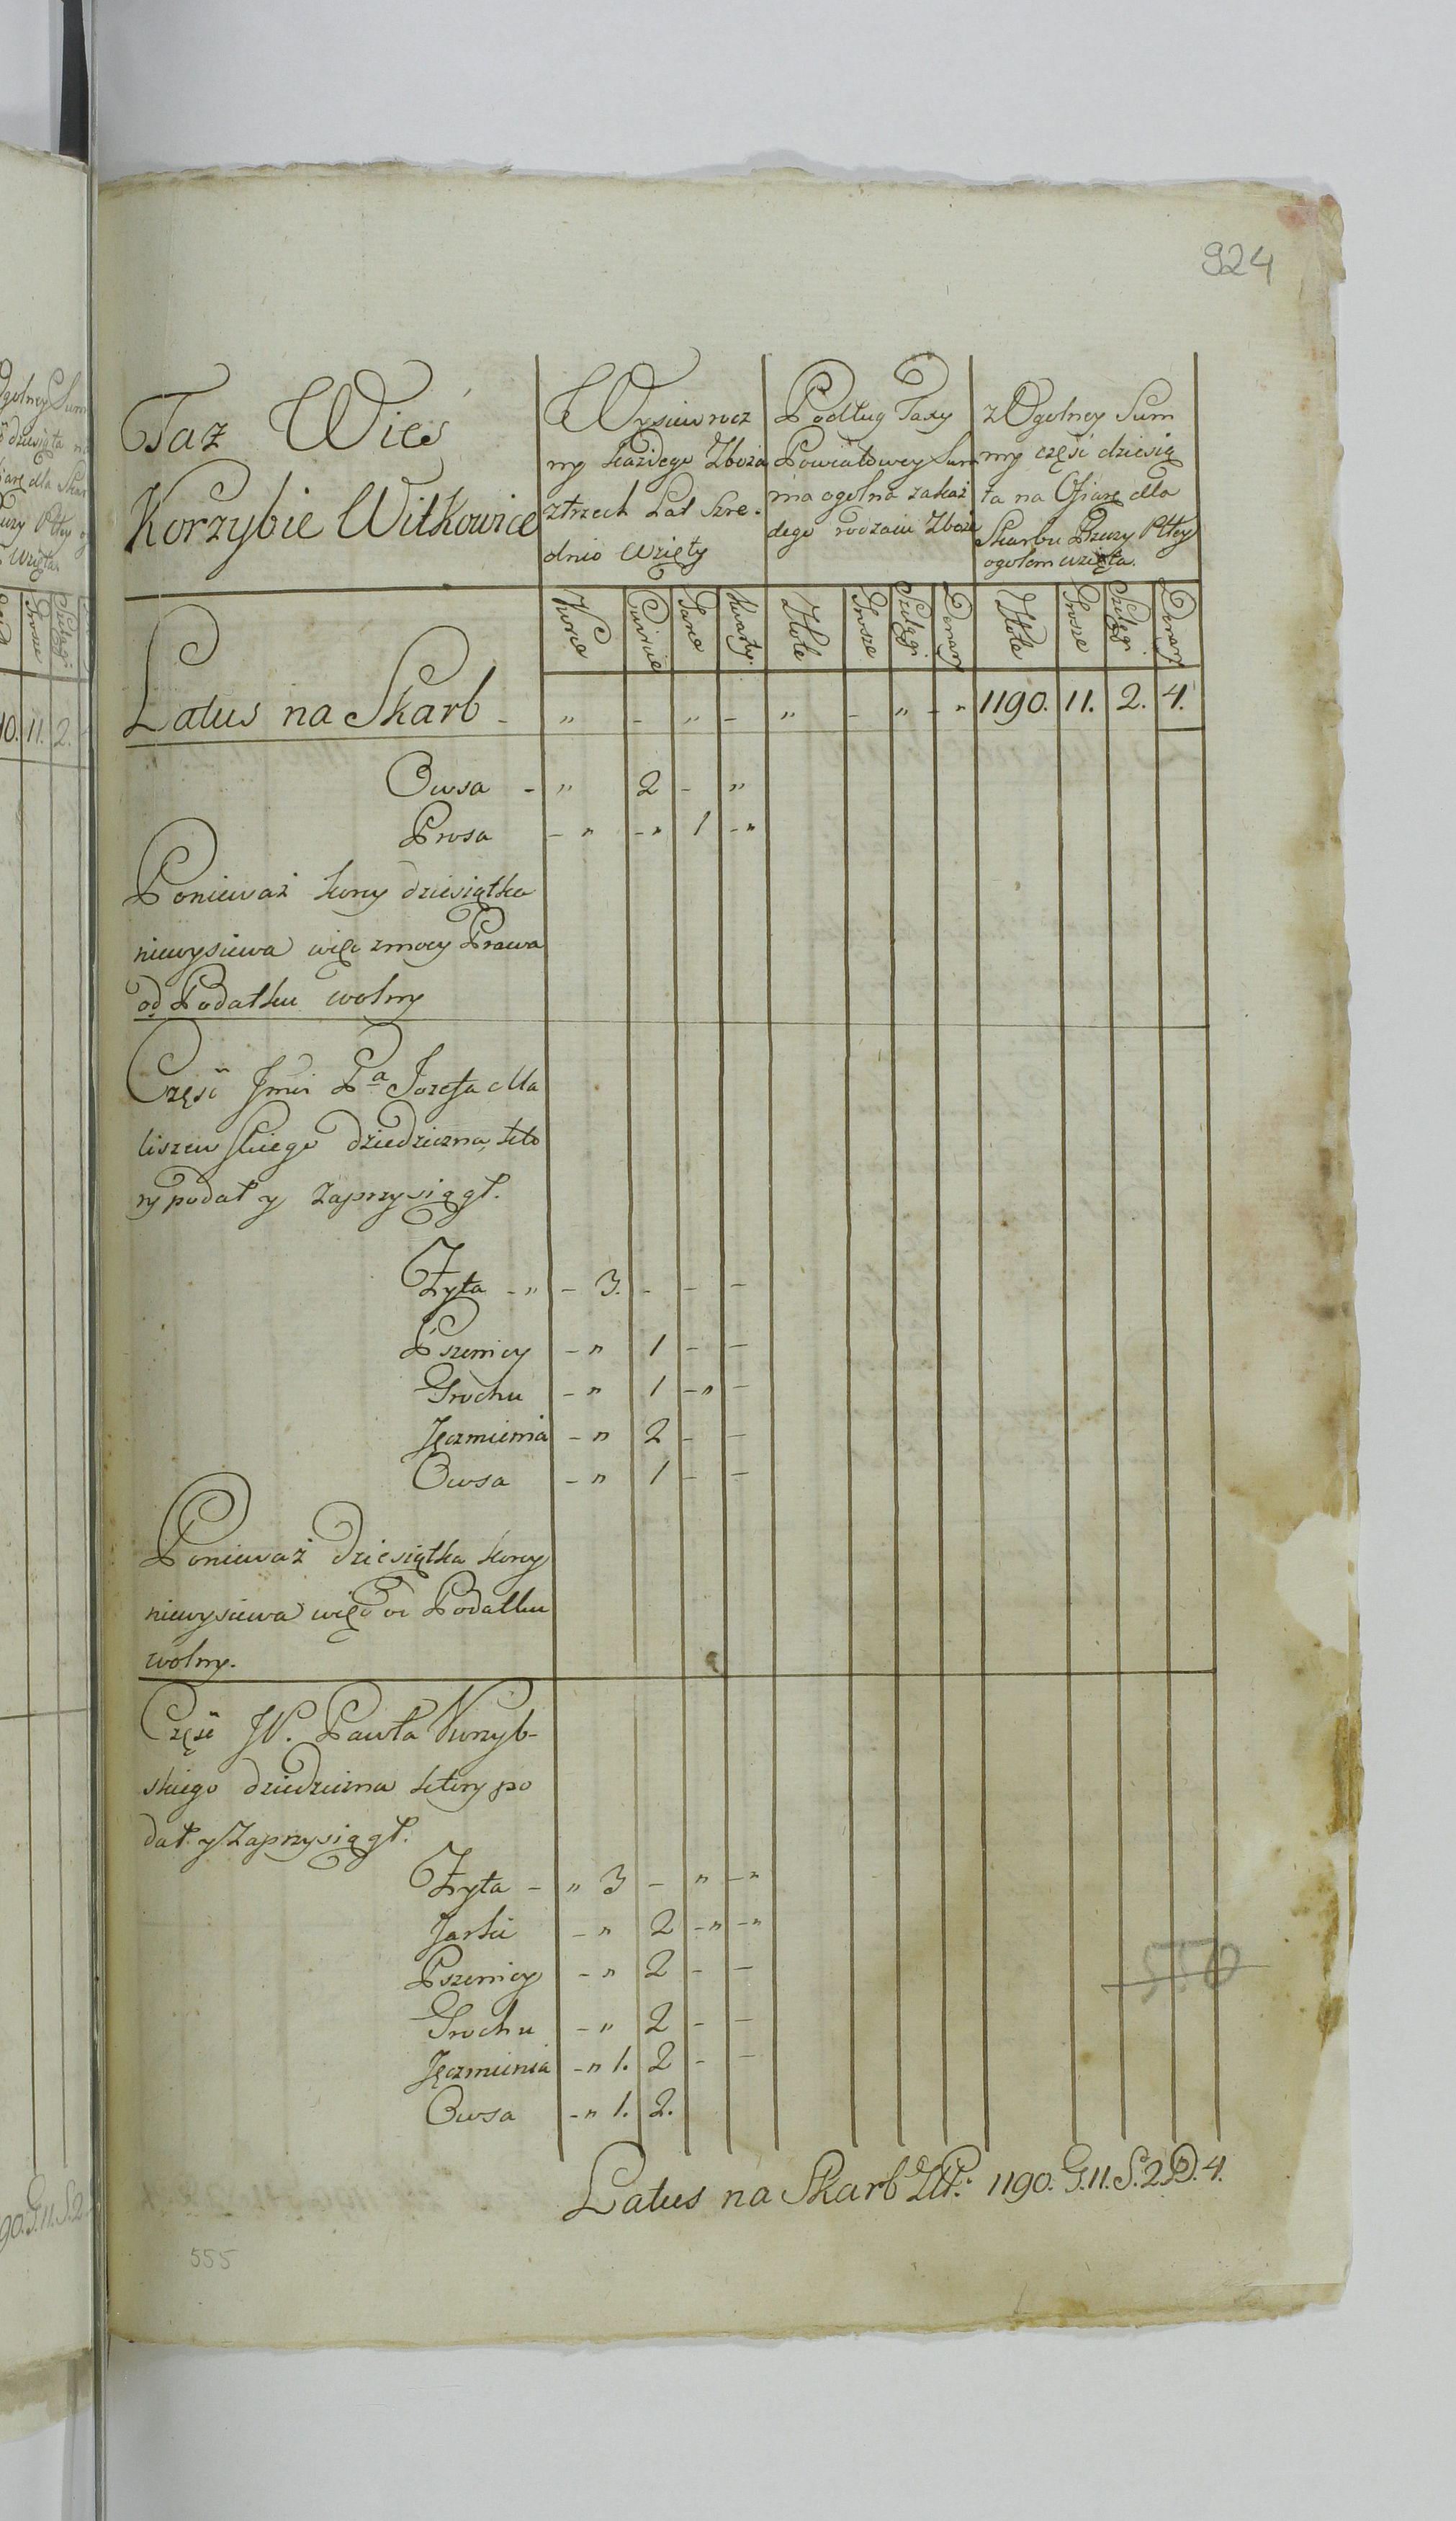 924
Taż Wieś
Korzybie Witkowice
Wysiew rocz
ny każdego Zboża
z trzech Lat Szre-
dnio wzięty
Podług Taxy
Powiatowey Sum
ma ogolna za każ
dego rodzaiu Zboże
z Ogolney Sum
my część dziesią
ta na Ofiarę dla
Skarbu Rzeczy Pltey
ogołem wzięta.
Korce Cwierce Garce Kwarty Złote Grosze Szelągi Denary Złote Grosze Szelągi Denary
Latus na Skarb - „ - „ - „ - „ - „ 1190. 11. 2. 4.
Owsa - „ 2 - „
Prosa - „ - „ 1 - „
Ponieważ korcy dziesiątka
niewysiewa więc z mocy Prawa
od Podatku wolny
Część Jmci Pa Jozefa Ma
liszewskiego dziedziczna, kto
ry podał y zaprzysiągł.
Zyta - „ - 3. - - -
Pszenicy - „ 1 - -
Grochu - „ 1 - „ -
Jęczmienia - „ 2 - -
Owsa - „ 1 - -
Ponieważ dziesiątka korcy
niewysiewa więc od Podatku
wolny.
Część JP. Pawła Korzyb-
skiego dziedziczna ktory po
dał y Zaprzysiągł.
Zyta - „ 3 - „ - „
Jarki - „ 2 - „ - „
Pszenicy - „ 2 - -
Grochu - „ 2 - -
Jęczmienia - „ 1. 2 - -
Owsa - „ 1. 2.
550
Latus na Skarb Złt: 1190. G. 11. S. 2. D. 4.
555